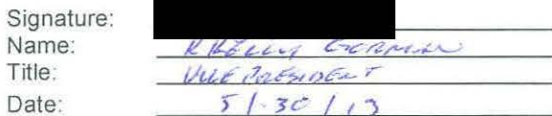 Signature:
Name: GERMAN
Title: VICE PRESIDENT
Date: 5/30/13